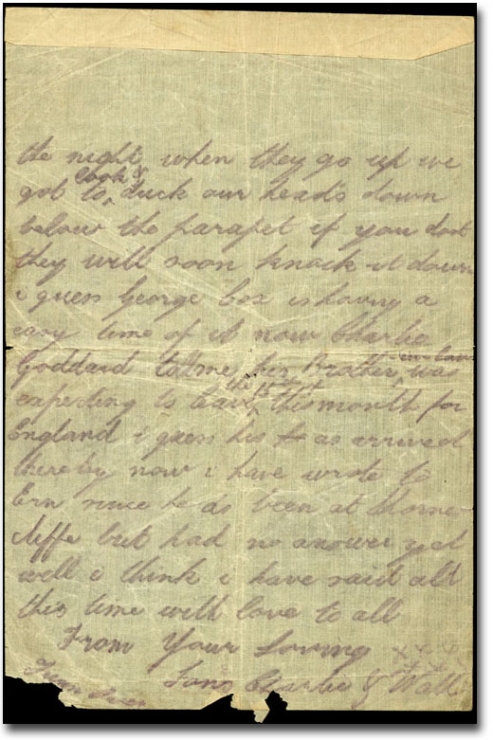 the night when they go up we
look &
got to ^ duck our heads down
below the parapet if you dont
they will soon knock it down
i guess George Cox is having a
easy time of it now Charlie
Goddard told me his Brother ^ in law was
expecting to leave ^ the 15 of this month for
England i guess his as arrived
there by now i have wrote to
Ern since he as been at Thorne
cliffe but had no answer yet
well i think i have said all
this time with love to all
From Your Loving x x x
Sons Charlie & Walt
Turn Over